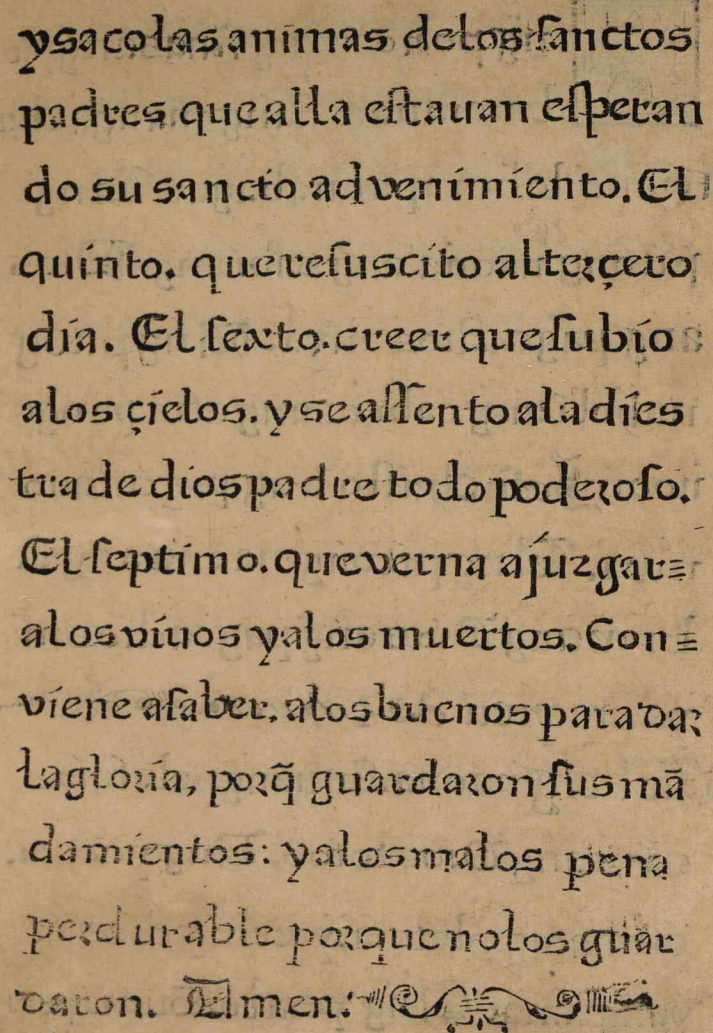 y saco las animas de los sanctos
padres que alla estauan esperan
do su sancto advenimiento. El
quinto. que resuscito al terçero
dia. El sexto. creer que subio
a los çielos. y se assento a la dies
tra de dios padre todo poderoso.
El septimo. que verna a juzgar=
a los viuos y a los muertos. Con=
viene a saber. a los buenos para dar
la gloria, porq̃ guardaron sus mã
damientos: y a los malos pena
perdurable porque no los guar
daron. Amen: